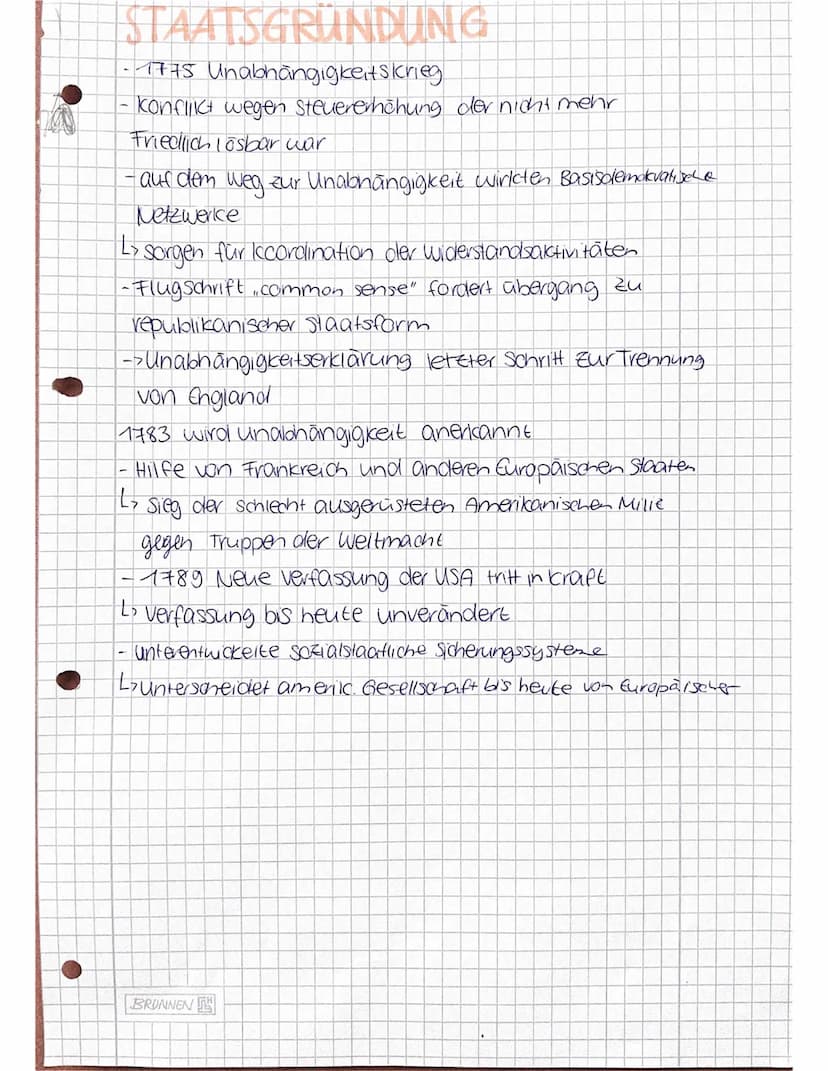 STAATSGRÜNDUNG
- 1775 Unabhängigkeitskrieg
- Konflikt wegen Steuererhöhung der nicht mehr
Friedlich lösbar war
- auf dem Weg zur Unabhängigkeit wirkten Basisdemokratische
Netzwerke
↳ sorgen für Koordination der Widerstandsaktivitäten
- Flugschrift „common sense" fordert übergang zu
republikanischer Staatsform
-> Unabhängigkeitserklärung letzter Schritt zur Trennung
von England
1783 wird unabhängigkeit anerkannt
- Hilfe von Frankreich und anderen Europäischen Staaten
↳ Sieg der schlecht ausgerüsteten Amerikanischen Milie
gegen Truppen der Weltmacht
- 1789 Neue Verfassung der USA tritt in kraft
↳ Verfassung bis heute unverändert
- unterentwickelte sozialstaatliche Sicherungssysteme
↳ Unterscheidet amerik. Gesellschaft bis heute von Europäischer
BRUNNEN